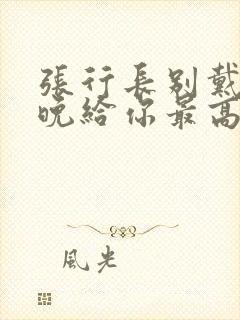 張行長別戴
晚給你最高
風光